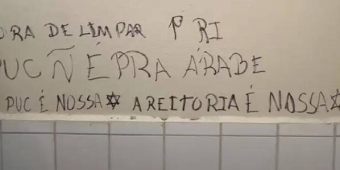 ORA DE LIMPAR 1º RI
PUC Ñ É PRA ÁRABE
PUC É NOSSA✡ A REITORIA É NOSSA✡